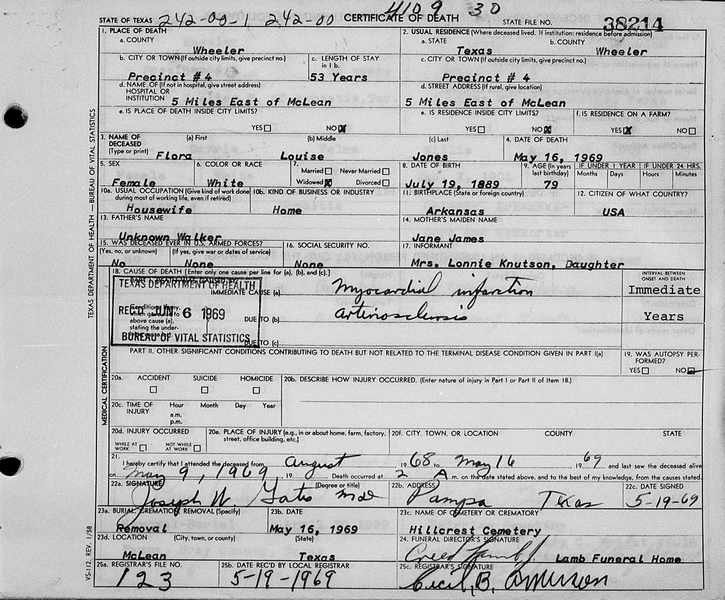 4109 30
STATE OF TEXAS 242-00-1 242-00 CERTIFICATE OF DEATH STATE FILE NO. 38214
1. PLACE OF DEATH 2. USUAL RESIDENCE (Where deceased lived. If institution: residence before admission)
a. COUNTY a. STATE b. COUNTY
Wheeler Texas Wheeler
b. CITY OR TOWN (If outside city limits, give precinct no.) c. LENGTH OF STAY in 1 b. c. CITY OR TOWN (If outside city limits, give precinct no.)
Precinct #4 53 Years Precinct #4
d. NAME OF (If not in hospital, give street address) HOSPITAL OR INSTITUTION d. STREET ADDRESS (If rural, give location)
5 Miles East of McLean 5 Miles East of McLean
e. IS PLACE OF DEATH INSIDE CITY LIMITS? e. IS RESIDENCE INSIDE CITY LIMITS? f. IS RESIDENCE ON A FARM?
YES NO X YES NO X YES X NO
3. NAME OF DECEASED (Type or print) (a) First (b) Middle (c) Last 4. DATE OF DEATH
Flora Louise Jones May 16, 1969
5. SEX 6. COLOR OR RACE Married Never Married 8. DATE OF BIRTH 9. AGE (In years last birthday) IF UNDER 1 YEAR IF UNDER 24 HRS.
Widowed X Divorced Months Days Hours Minutes
Female White July 19, 1889 79
10a. USUAL OCCUPATION (Give kind of work done during most of working life, even if retired) 10b. KIND OF BUSINESS OR INDUSTRY 11. BIRTHPLACE (State or foreign country) 12. CITIZEN OF WHAT COUNTRY?
Housewife Home Arkansas USA
13. FATHER'S NAME 14. MOTHER'S MAIDEN NAME
Unknown Walker Jane James
15. WAS DECEASED EVER IN U.S. ARMED FORCES? 16. SOCIAL SECURITY NO. 17. INFORMANT
(Yes, no, or unknown) (If yes, give war or dates of service)
No None None Mrs. Lonnie Knutson, Daughter
18. CAUSE OF DEATH [Enter only one cause per line for (a), (b), and (c).] INTERVAL BETWEEN ONSET AND DEATH
TEXAS DEPARTMENT OF HEALTH
IMMEDIATE CAUSE (a) Myocardial infarction Immediate
REC'D JUN 6 1969 DUE TO (b) Artiriosclerosis Years
BUREAU OF VITAL STATISTICS DUE TO (c)
PART II. OTHER SIGNIFICANT CONDITIONS CONTRIBUTING TO DEATH BUT NOT RELATED TO THE TERMINAL DISEASE CONDITION GIVEN IN PART I(a) 19. WAS AUTOPSY PERFORMED?
YES NO
20a. ACCIDENT SUICIDE HOMICIDE 20b. DESCRIBE HOW INJURY OCCURRED. (Enter nature of injury in Part I or Part II of Item 18.)
20c. TIME OF INJURY Hour a.m. p.m. Month Day Year
20d. INJURY OCCURRED WHILE AT WORK NOT WHILE AT WORK 20e. PLACE OF INJURY (e.g., in or about home, farm, factory, street, office building, etc.) 20f. CITY, TOWN, OR LOCATION COUNTY STATE
21. I hereby certify that I attended the deceased from August 1968 to May 16 1969 and last saw the deceased alive
on May 9, 1969 Death occurred at 2 A. m. on the date stated above, and to the best of my knowledge, from the causes stated.
22a. SIGNATURE (Degree or title) 22b. ADDRESS 22c. DATE SIGNED
Joseph W Gates MD Pampa Texas 5-19-69
23a. BURIAL, CREMATION, REMOVAL (Specify) 23b. DATE 23c. NAME OF CEMETERY OR CREMATORY
Removal May 16, 1969 Hillcrest Cemetery
23d. LOCATION (City, town, or county) (State) 24. FUNERAL DIRECTOR'S SIGNATURE
McLean Texas Creed Lamb Jr. Lamb Funeral Home
25a. REGISTRAR'S FILE NO. 25b. DATE REC'D BY LOCAL REGISTRAR 25c. REGISTRAR'S SIGNATURE
123 5-19-1969 Cecil B. Amerson
TEXAS DEPARTMENT OF HEALTH — BUREAU OF VITAL STATISTICS
MEDICAL CERTIFICATION
VS-112 REV. 1/58